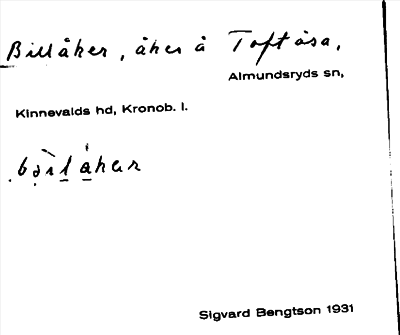 Billåker, åker å Toftåsa,
Almundsryds sn,
Kinnevalds hd, Kronob. l.
Sigvard Bengtson 1931